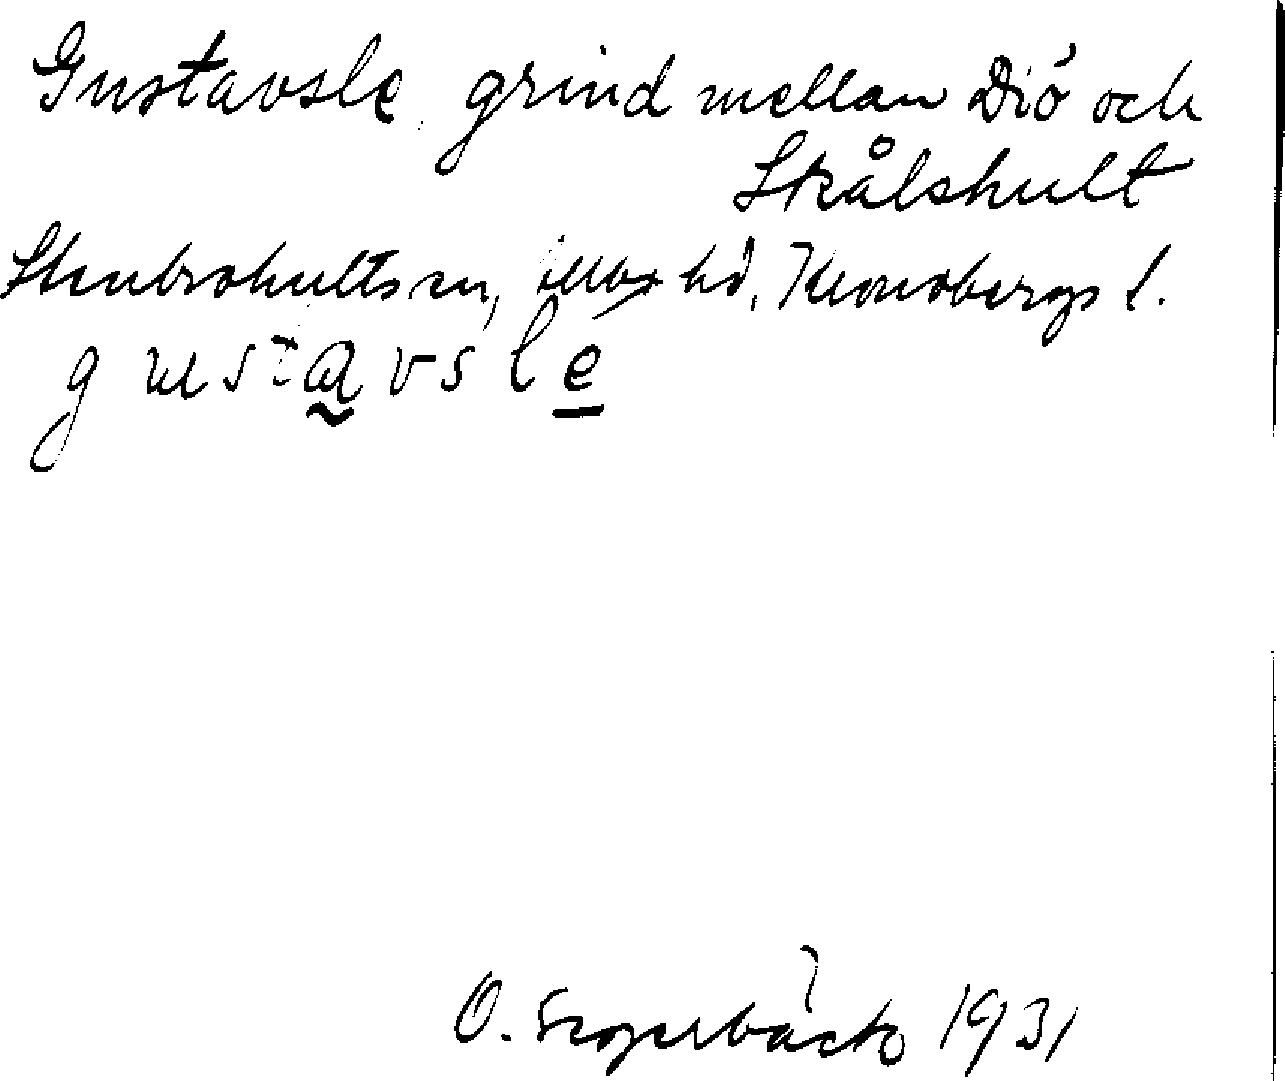 Gustavsle, grind mellan Diö och
Skålshult
Stenbrohults sn, Allbo hd, Kronobergs l.
gustavsle
O. Segerbäck 1931